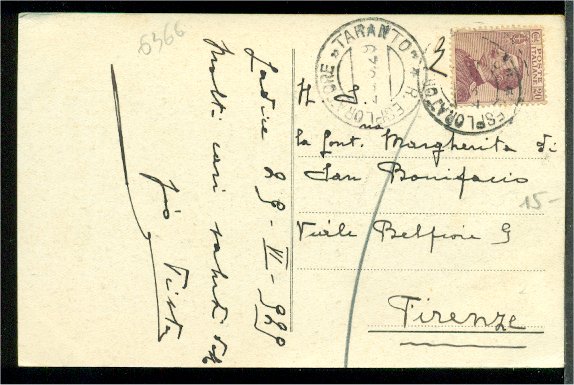 6366
Ladice 29-VI-929
Molti cari saluti dal
TARANTO * R. ESPLORATORE
R. ESPLORATORE
POSTE
ITALIANE
20
N. G.
na
la Cont. Margherita di
San Bonifacio
Viale Belfiore 9
Firenze
15-